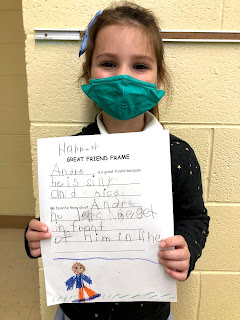 Hannah
GREAT FRIEND FRAME
Andre is a great friend because
he is silly
and nice.
My favorite thing about Andre
he lets me get
in front
of him in line